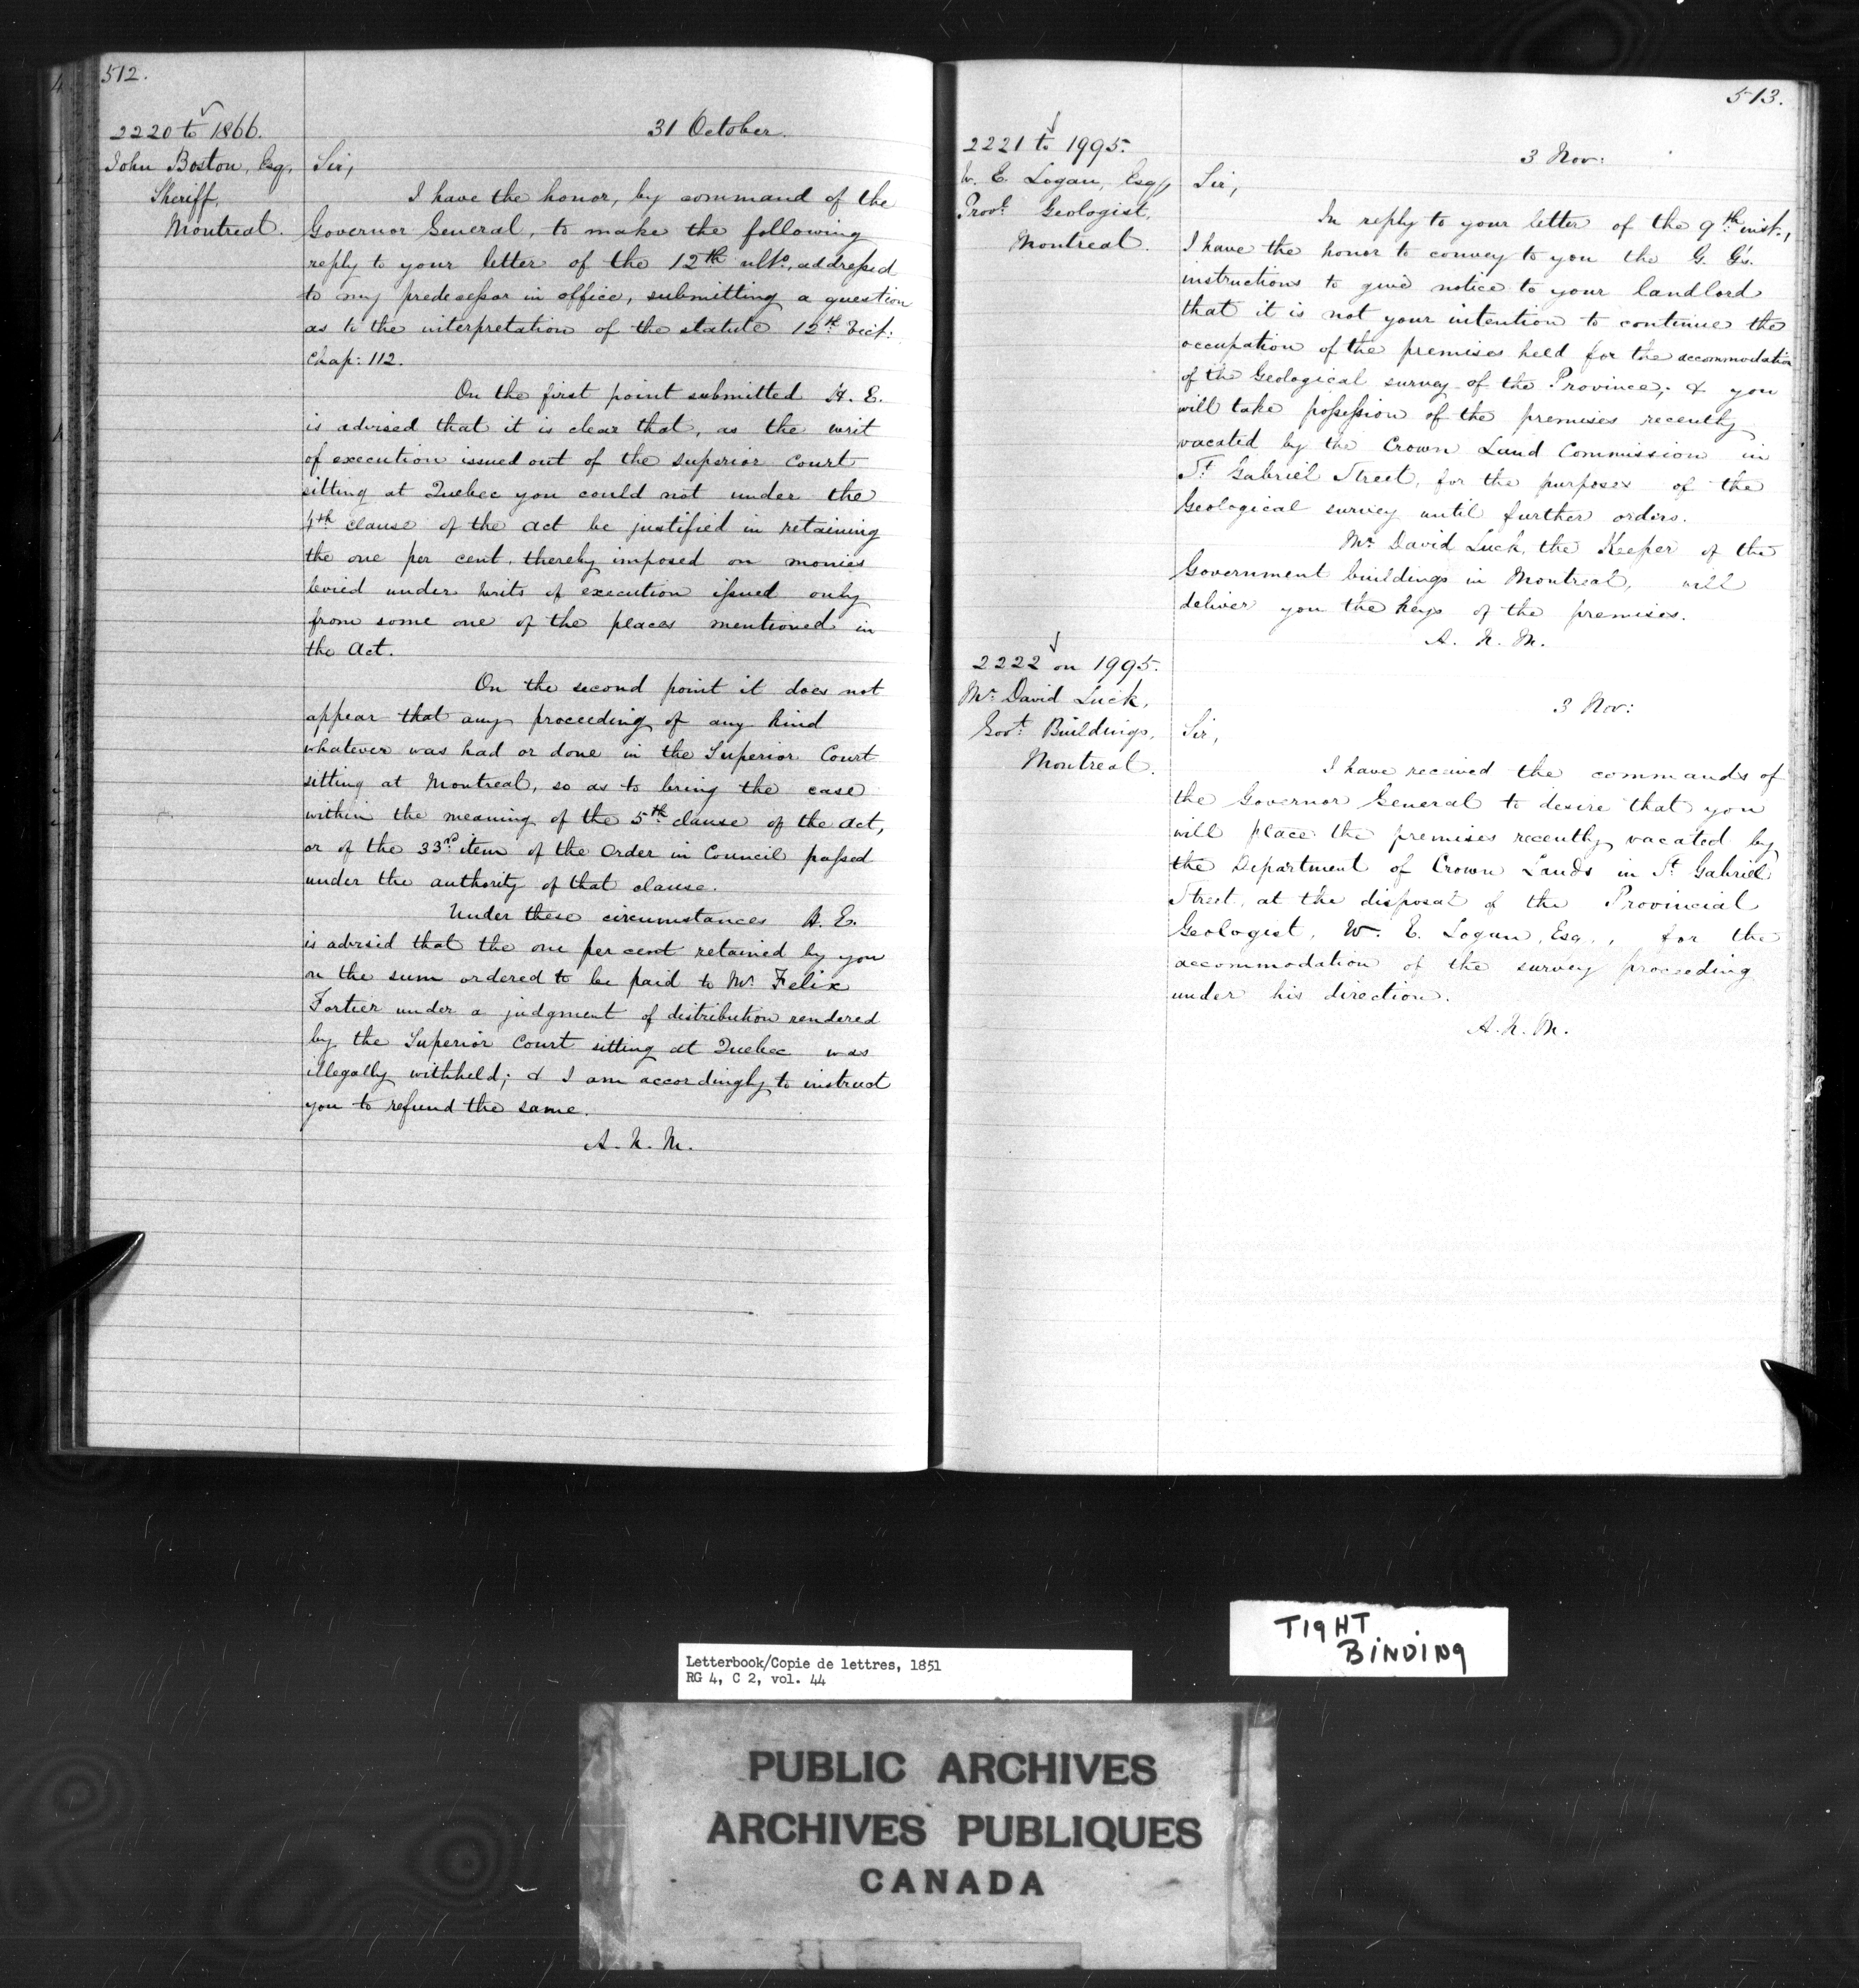 512.
2220 to 1866.
John Boston, Esq,
Sheriff,
Montreal.
31 October.
Sir,
I have the honor, by command of the
Governor General, to make the following
reply to your letter of the 12th ulto, addressed
to my predecessor in office, submitting a question
as to the interpretation of the statute 12th Vict:
Chap: 112.
On the first point submitted H. E.
is advised that it is clear that, as the writ
of execution issued out of the Superior Court
sitting at Quebec you could not under the
4th clause of the Act be justified in retaining
the one per cent, thereby imposed on monies
levied under writs of execution issued only
from some one of the places mentioned in
the Act.
On the second point it does not
appear that any proceeding of any kind
whatever was had or done in the Superior Court
sitting at Montreal, so as to bring the case
within the meaning of the 5th clause of the Act,
or of the 33rd item of the Order in Council passed
under the authority of that clause.
Under these circumstances H. E.
is advised that the one per cent retained by you
on the sum ordered to be paid to Mr Felix
Fortier under a judgment of distribution rendered
by the Superior Court sitting at Quebec was
illegally withheld; & I am accordingly to instruct
you to refund the same.
A. N. M.
513.
2221 to 1995.
W. E. Logan, Esq,
Provl Geologist,
Montreal.
3 Nov:
Sir,
In reply to your letter of the 9th inst.,
I have the honor to convey to you the G. G's.
instructions to give notice to your landlord
that it is not your intention to continue the
occupation of the premises held for the accommodation
of the Geological survey of the Province; & you
will take possession of the premises recently
vacated by the Crown Land Commission in
St Gabriel Street, for the purposes of the
Geological survey until further orders.
Mr David Luck, the Keeper of the
Government buildings in Montreal, will
deliver you the keys of the premises.
A. N. M.
2222 on 1995.
Mr David Luck,
Govt Buildings,
Montreal.
3 Nov:
Sir,
I have received the commands of
the Governor General to desire that you
will place the premises recently vacated by
the Department of Crown Lands in St Gabriel
Street, at the disposal of the Provincial
Geologist, W. E. Logan, Esq., for the
accommodation of the survey proceeding
under his direction.
A. N. M.
TIGHT
BINDING
Letterbook/Copie de lettres, 1851
RG 4, C 2, vol. 44
PUBLIC ARCHIVES
ARCHIVES PUBLIQUES
CANADA